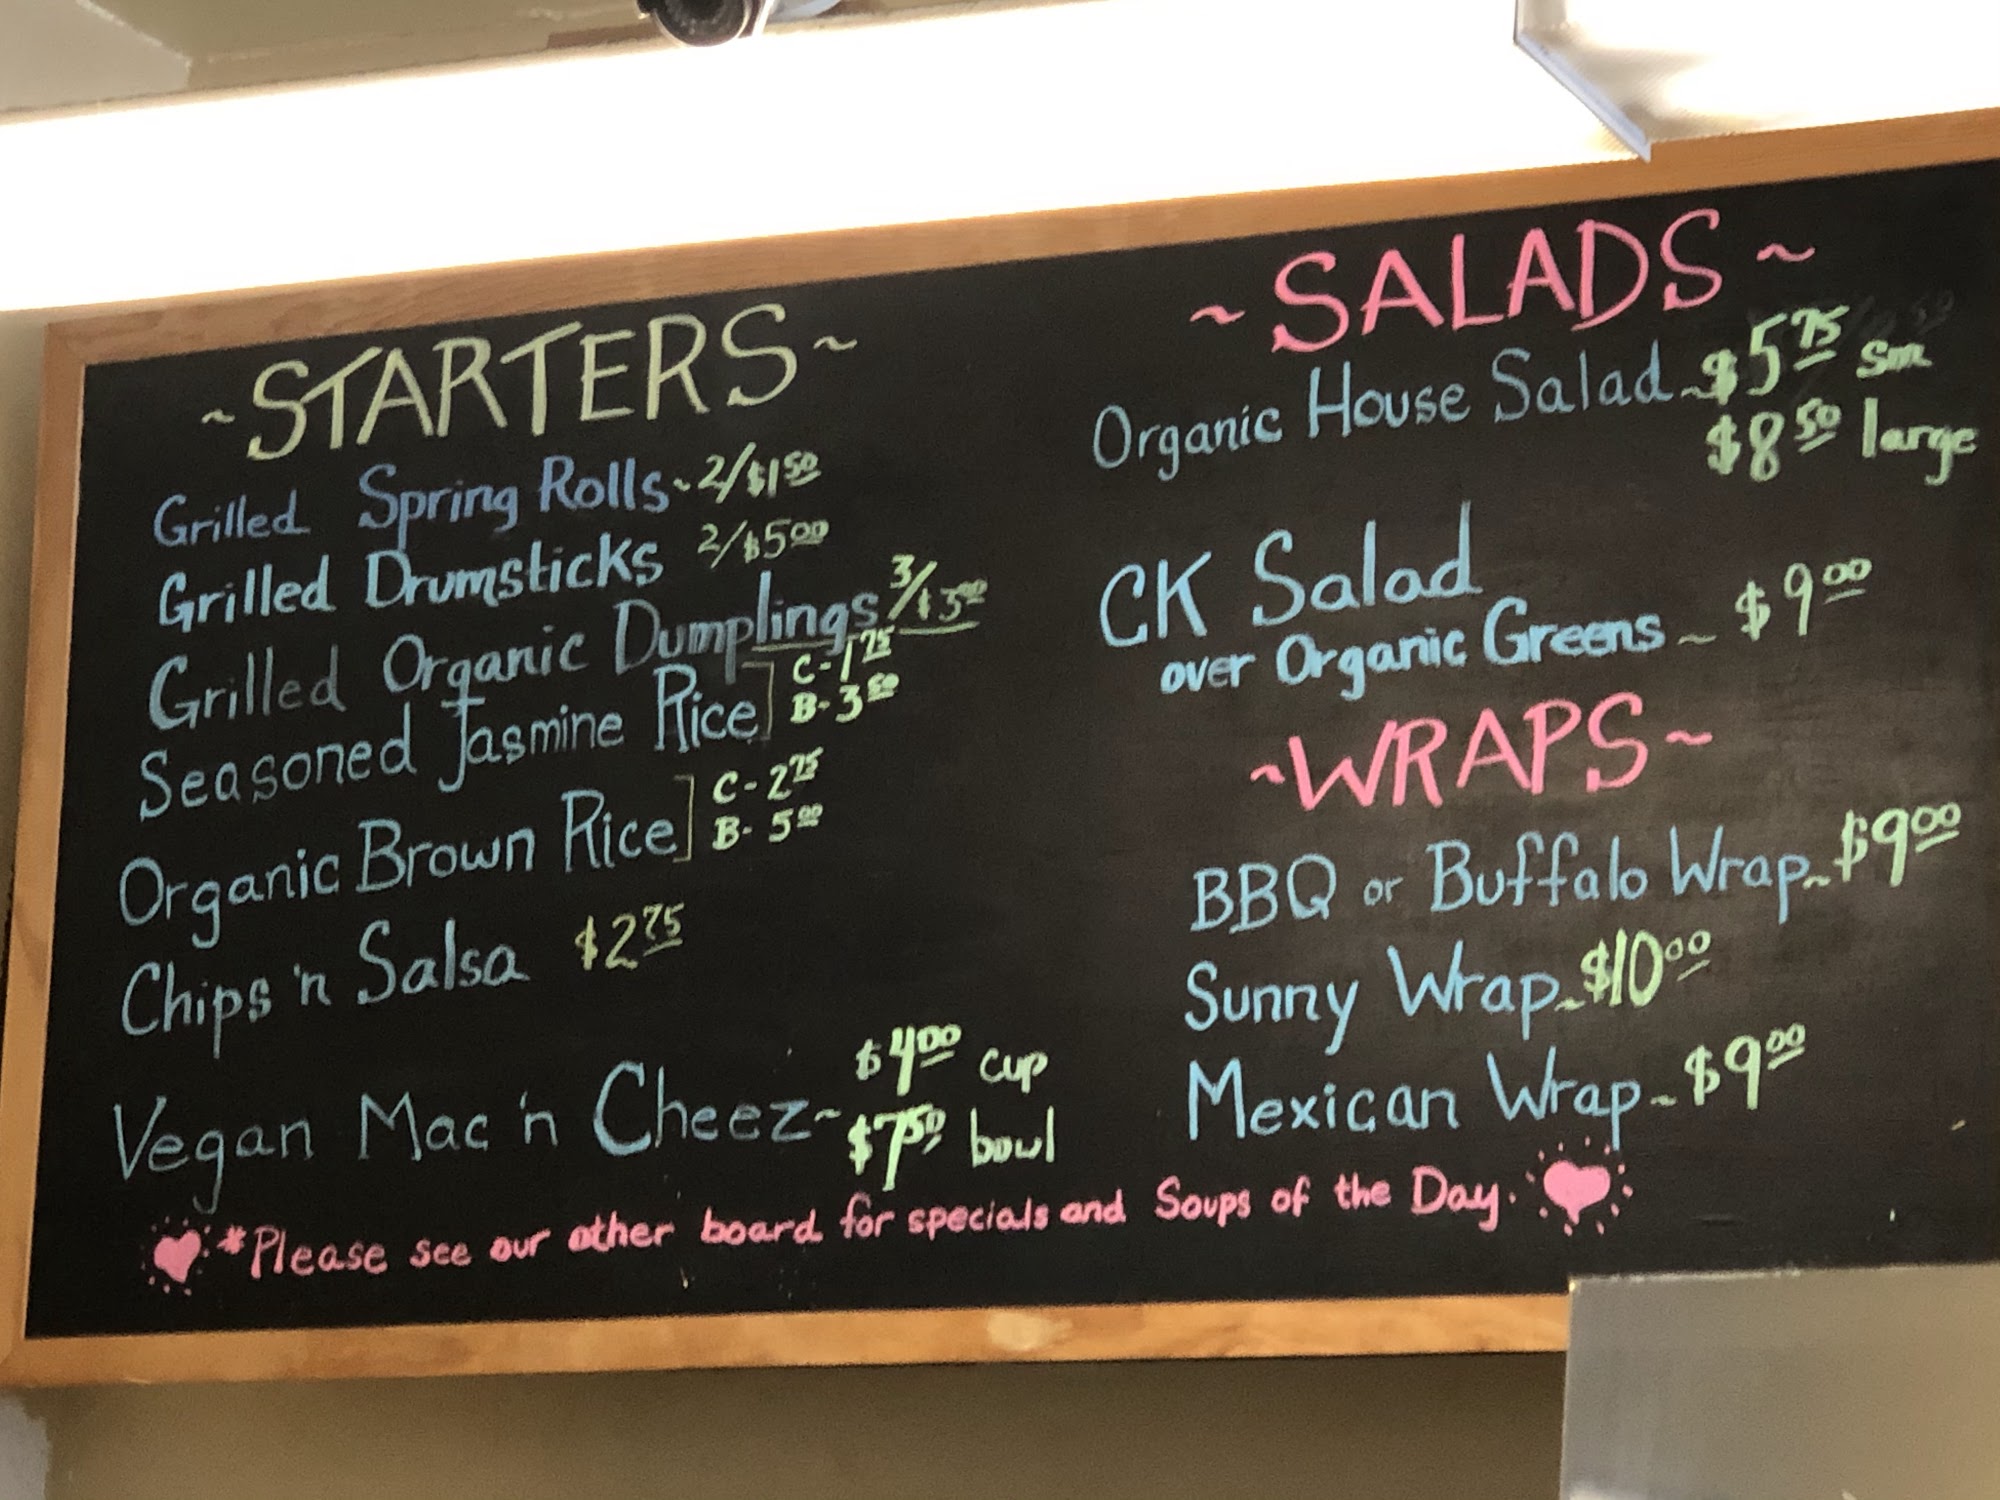 ~STARTERS~
Grilled Spring Rolls~2/$1.50
Grilled Drumsticks 2/$5.00
Grilled Organic Dumplings 3/$3.00
Seasoned Jasmine Rice] C-1.75
B-3.50
Organic Brown Rice] C-2.75
B-5.00
Chips 'n Salsa $2.75
Vegan Mac 'n Cheez~ $4.00 cup
$7.50 bowl
~SALADS~
Organic House Salad~$5.75 sm
$8.50 large
CK Salad
over Organic Greens~ $9.00
~WRAPS~
BBQ or Buffalo Wrap~$9.00
Sunny Wrap~$10.00
Mexican Wrap~$9.00
*Please see our other board for specials and Soups of the Day.